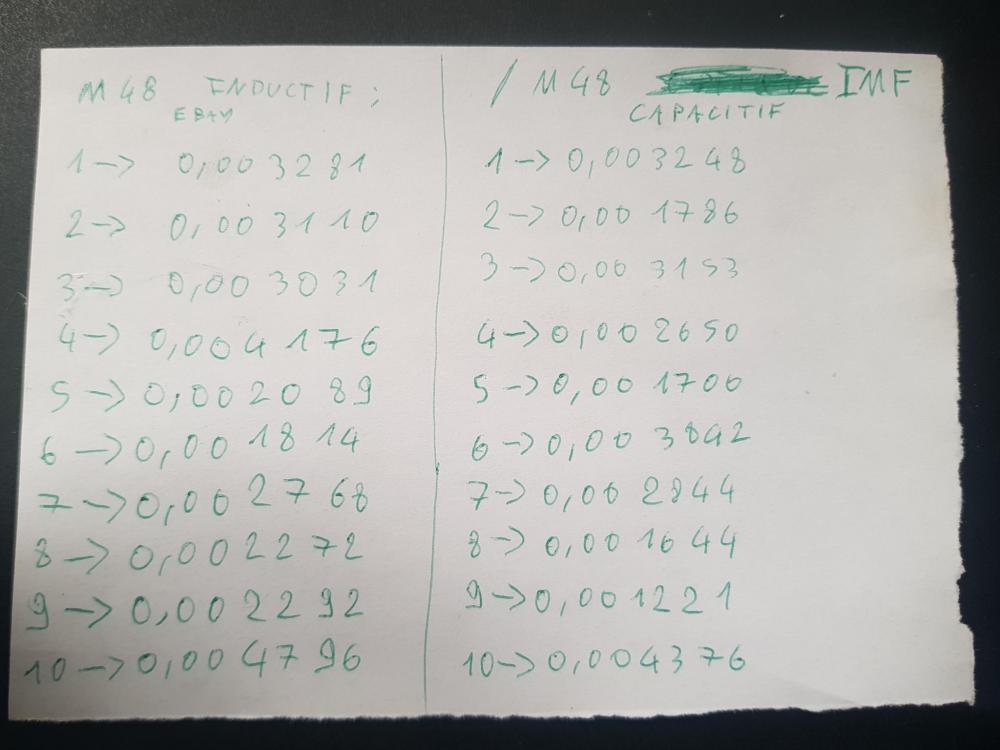 M48 INDUCTIF :
EBAY
1-> 0,003281
2-> 0,003110
3-> 0,003031
4-> 0,004176
5-> 0,002089
6-> 0,001814
7-> 0,002768
8-> 0,002272
9-> 0,002292
10-> 0,004796
/ M48 IMF
CAPACITIF
1-> 0,003248
2-> 0,001786
3-> 0,003153
4-> 0,002650
5-> 0,001700
6-> 0,003842
7-> 0,002844
8-> 0,001644
9-> 0,001221
10-> 0,004376